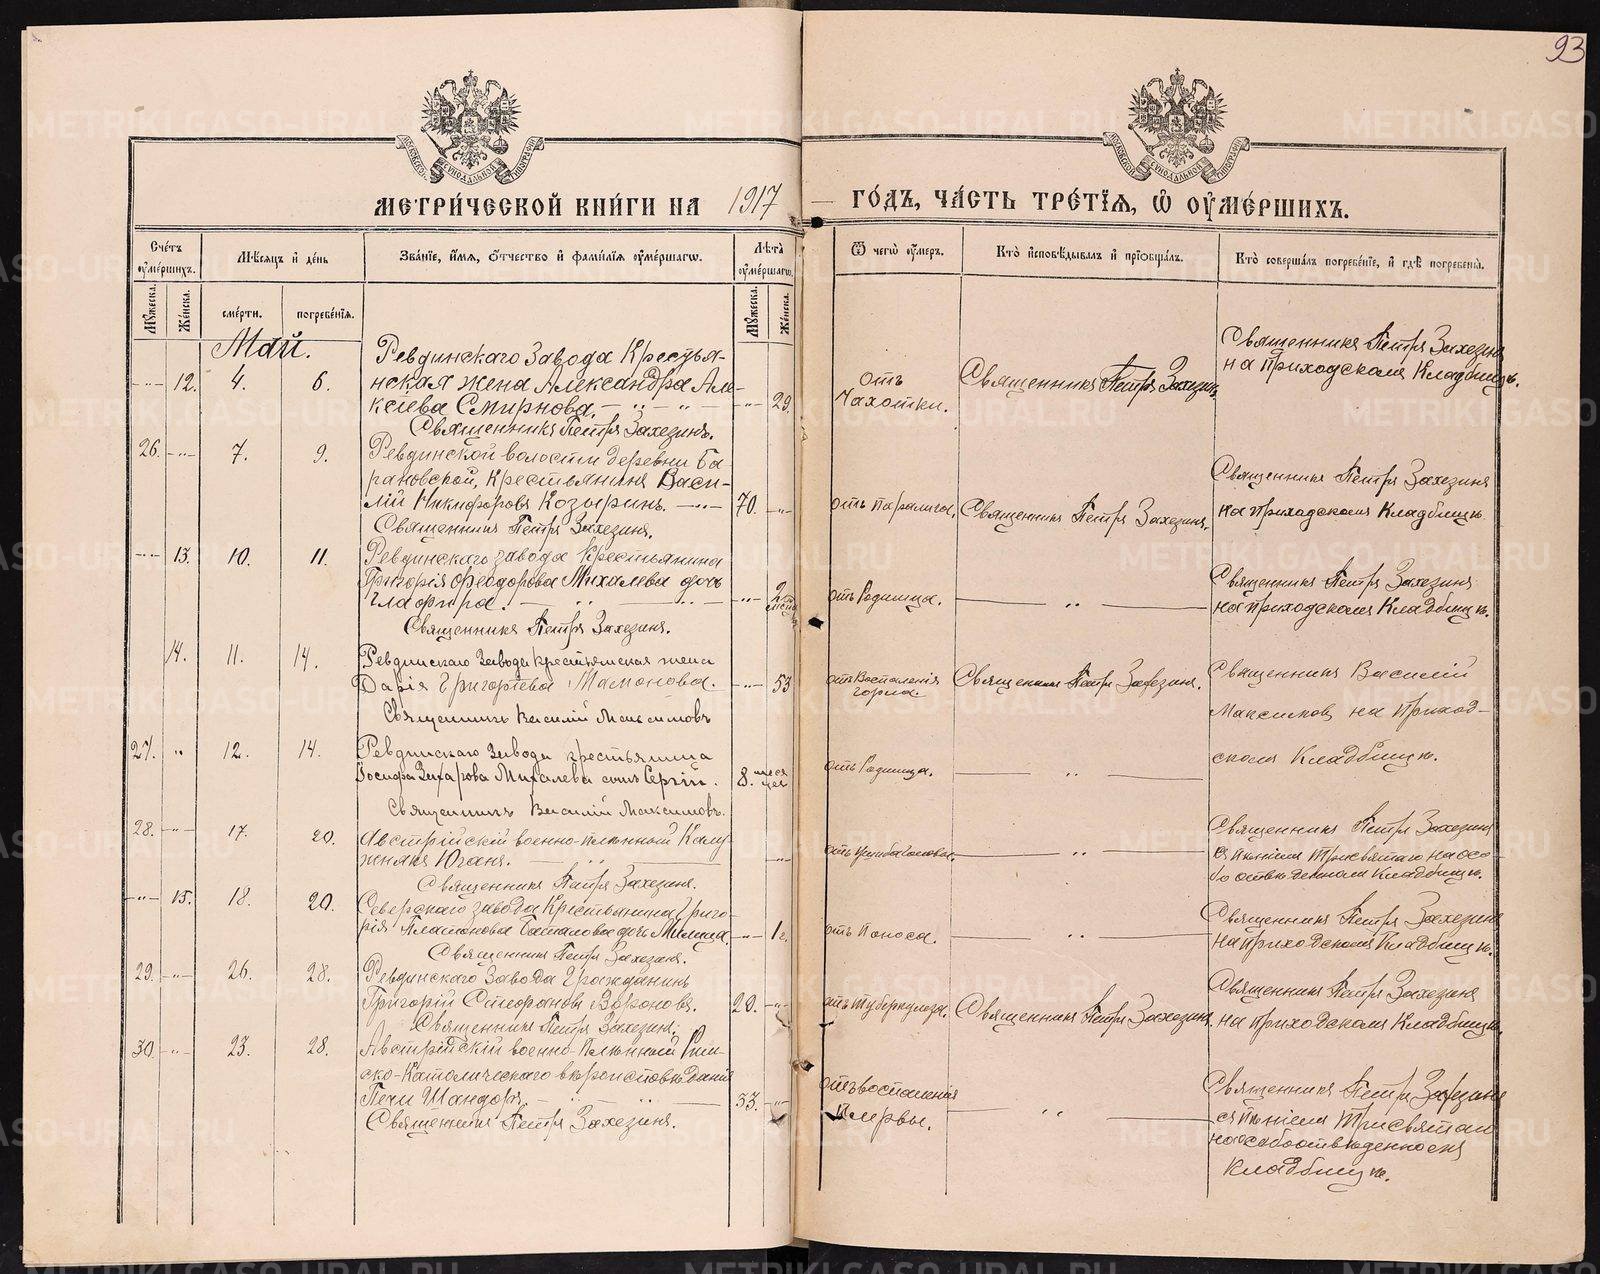 93
МЕТРИ́ЧЕСКОЙ КНИ́ГИ НА 1917
ГО́ДЪ, ЧА́СТЬ ТРЕ́ТЇѦ, Ѡ҆ ОУ҆МЕ́РШИХЪ.
Сче́тъ оу҆ме́ршихъ.
Мѣ́сѧцъ и҆ де́нь
Зва́нїе, и҆́мѧ, ѻ҆́тчество и҆ фами́лїѧ оу҆ме́ршагѡ.
Лѣ́та оу҆ме́ршагѡ.
Ѿ чегѡ̀ оу҆́меръ.
Кто̀ и҆сповѣ́дывалъ и҆ прїѻбща́лъ.
Кто̀ соверша́лъ погребе́нїе, и҆ гдѣ̀ погребены̀.
Мꙋ́жеска.
Же́нска.
сме́рти.
погребе́нїѧ.
Мꙋ́жеска.
Же́нска.
Май.
12. 4. 6.
Ревдинскаго Завода Крестья-
нская жена Александра Але-
ксіева Смирнова.
29.
Священникъ Петръ Захезинъ.
отъ
Чахотки.
Священникъ Петръ Захезинъ
Священникъ Петръ Захезинъ
на приходскомъ Кладбищѣ.
26. 7. 9.
Ревдинской волости деревни Ба-
рановской, Крестьянинъ Васи-
лій Никифоровъ Козыринъ.
70.
Священникъ Петръ Захезинъ.
отъ паралича.
Священникъ Петръ Захезинъ.
Священникъ Петръ Захезинъ
на приходскомъ Кладбищѣ
13. 10. 11.
Ревдинскаго завода Крестьянина
Григорія Феодорова Михалева дочь
Глафира.
2
Священникъ Петръ Захезинъ.
отъ Родимца.
Священникъ Петръ Захезинъ
на приходскомъ Кладбищѣ.
14. 11. 14.
Ревдинскаго Завода крестьянская жена
Дарія Григорьева Мамонова.
53
Священникъ Василій Максимовъ
отъ Воспаленія
горла.
Священникъ Петръ Захезинъ.
Священникъ Василій
Максимовъ на Приход-
скомъ Кладбищѣ.
27. 12. 14.
Ревдинскаго Завода крестьянина
Іосифа Захарова Михалева сынъ Сергій.
8. меся
цев
Священникъ Василій Максимовъ.
отъ Родимца.
28. 17. 20.
Австрійскій военно-плѣнный Калу-
жнякъ Юганъ.
Священникъ Петръ Захезинъ.
Священникъ Петръ Захезинъ
съ пѣніемъ Трисвятаго на осо-
бо отвѣденномъ Кладбищѣ.
15. 18. 20.
Северскаго завода Крестьянина Григо-
рія Платонова Баталова дочь Милица.
1 г.
Священникъ Петръ Захезинъ.
отъ Поноса.
Священникъ Петръ Захезинъ
на приходскомъ Кладбищѣ.
29. 26. 28.
Ревдинскаго Завода Гражданинъ
Григорій Стефановъ Вороновъ.
20.
Священникъ Петръ Захезинъ.
отъ туберкулеза.
Священникъ Петръ Захезинъ.
Священникъ Петръ Захезинъ
на приходскомъ Кладбищѣ.
30. 23. 28.
Австрійскій военно-плѣнный Рим-
ско-Католическаго вѣроисповѣданія
Печи Шандоръ.
33.
Священникъ Петръ Захезинъ.
отъ воспаленія
плервы.
Священникъ Петръ Захезинъ
съ пѣніемъ Трисвятаго
на особоотвѣденномъ
Кладбищѣ.
METRIKI.GASO-URAL.RU